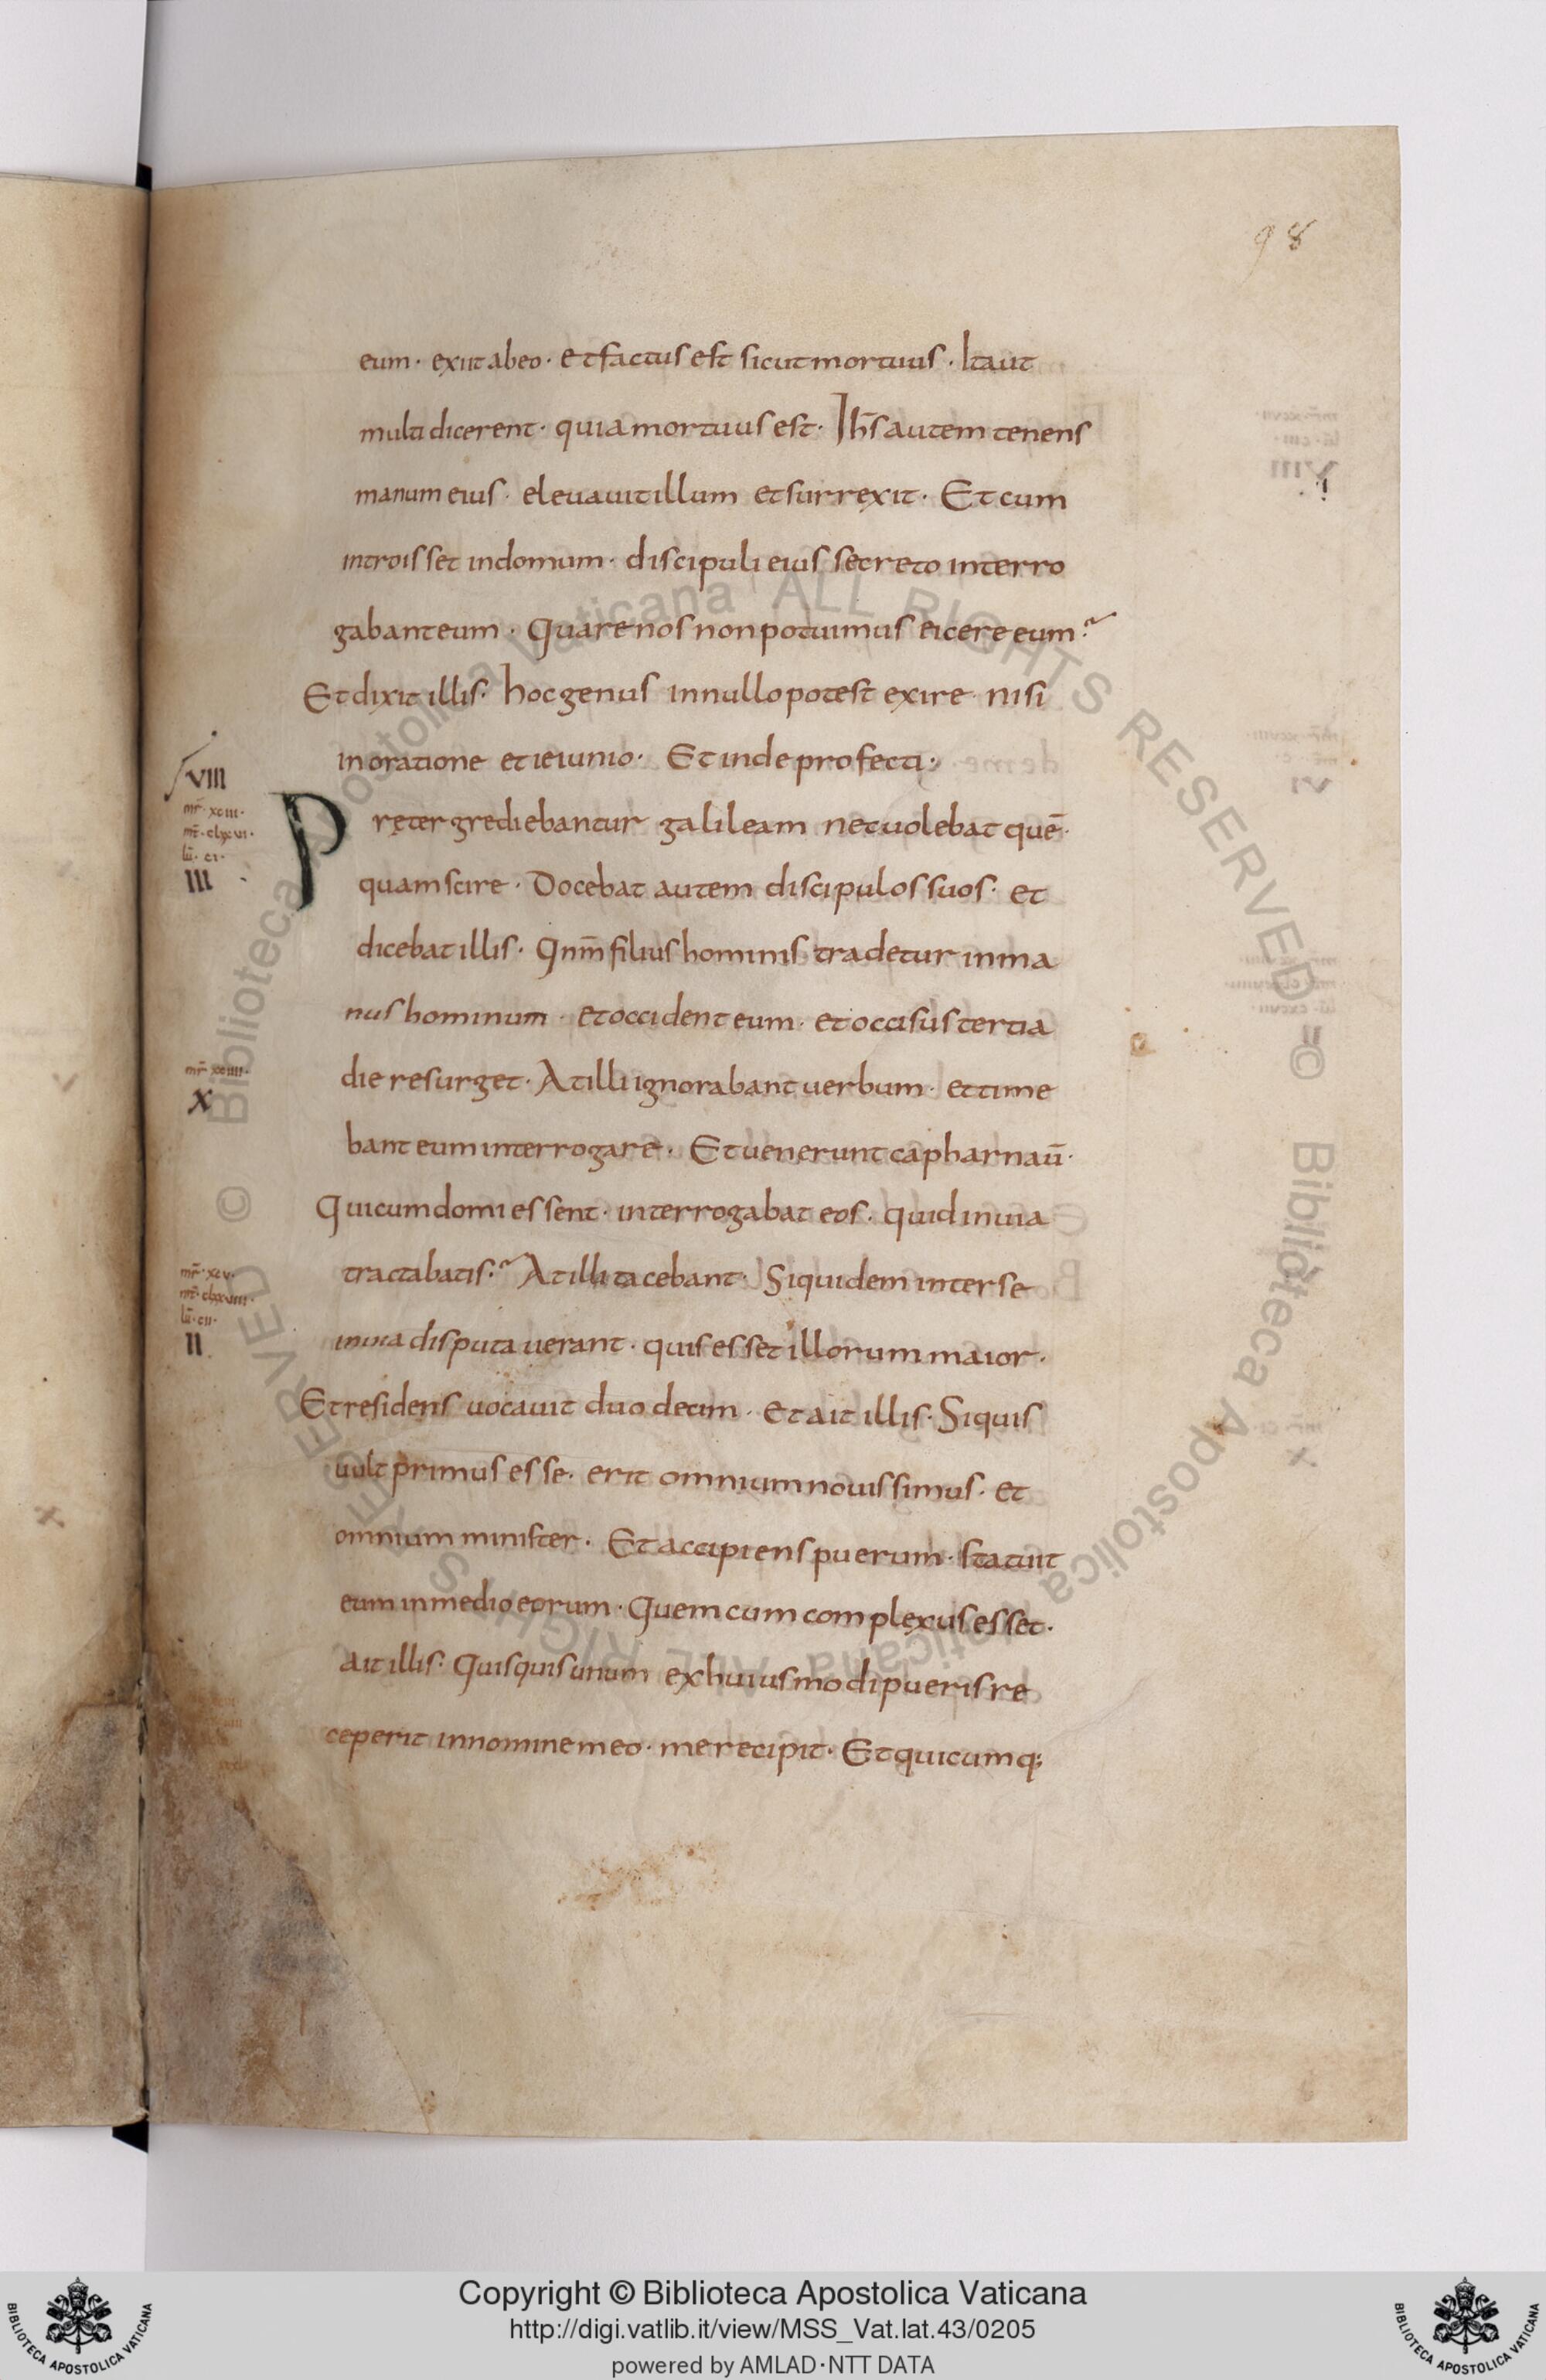 98
eum · exiit ab eo · et factus est sicut mortuus · Ita ut
multi dicerent · quia mortuus est · Ih̅s autem tenens
manum eius · eleuauit illum et surrexit · Et cum
introisset in domum · discipuli eius secreto interro
gabant eum · Quare nos non potuimus eicere eum?
Et dixit illis · hoc genus in nullo potest exire nisi
in oratione et ieiunio · Et inde profecti ·
VIII
mr̅ · xciii ·
lu̅ · ci ·
III
Pręter grediebantur galileam nec uolebat quē
quam scire · Docebat autem discipulos suos · et
dicebat illis · Qnm̅ filius hominis tradetur in ma
nus hominum · et occident eum · et occisus tertia
die resurget · At illi ignorabant uerbum · et time
mr̅ xciiii ·
X
bant eum interrogare · Et uenerunt capharnau̅ ·
Qui cum domi essent · interrogabat eos · quid in uia
mr̅ · xcv ·
lu̅ · cii ·
II
tractabatis? At illi tacebant · Siquidem inter se
in uia disputauerant · quis esset illorum maior ·
Et residens uocauit duodecim · et ait illis · Si quis
uult primus esse · erit omnium nouissimus · et
omnium minister · Et accipiens puerum · statuit
eum in medio eorum · Quem cum complexus esset ·
ait illis · Quisquis unum ex huiusmodi pueris re
ceperit in nomine meo · me recipit · Et quicumq;
© Biblioteca Apostolica Vaticana ALL RIGHTS RESERVED
© Biblioteca Apostolica Vaticana ALL RIGHTS RESERVED
Copyright © Biblioteca Apostolica Vaticana
http://digi.vatlib.it/view/MSS_Vat.lat.43/0205
powered by AMLAD·NTT DATA
BIBLIOTECA APOSTOLICA VATICANA
BIBLIOTECA APOSTOLICA VATICANA